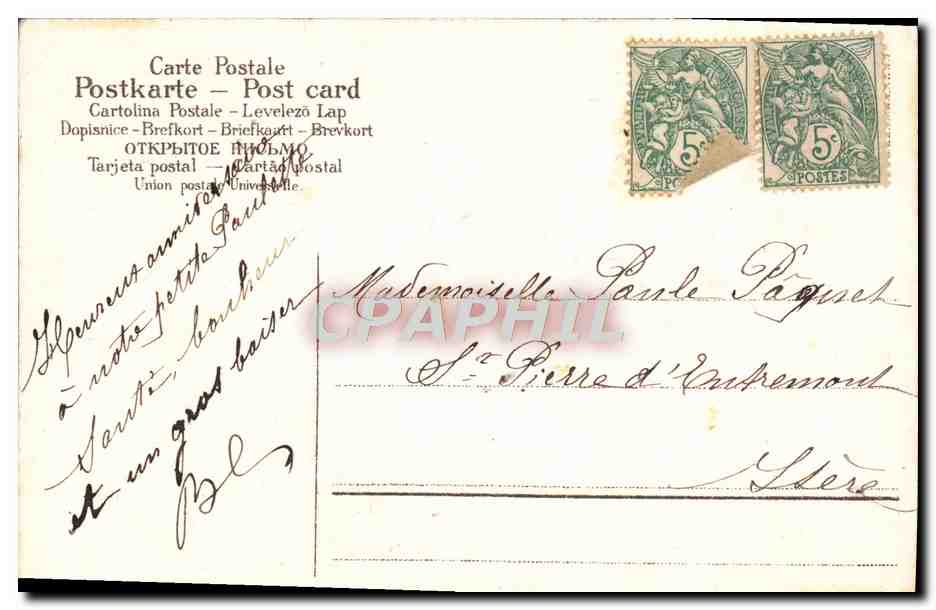 Carte Postale
Postkarte – Post card
Cartolina Postale – Levelező Lap
Dopisnice – Brefkort – Briefkaart – Brevkort
ОТКРЫТОЕ ПИСЬМО
Tarjeta postal — Cartão postal
Union postale Universelle.
5c
POSTES
5c
POSTES
Heureux anniversaire
à notre petite Paulette
Santé, bonheur
et un gros baiser
Mademoiselle Paule Pâquet
St Pierre d'Entremont
Isère
CPAPHIL